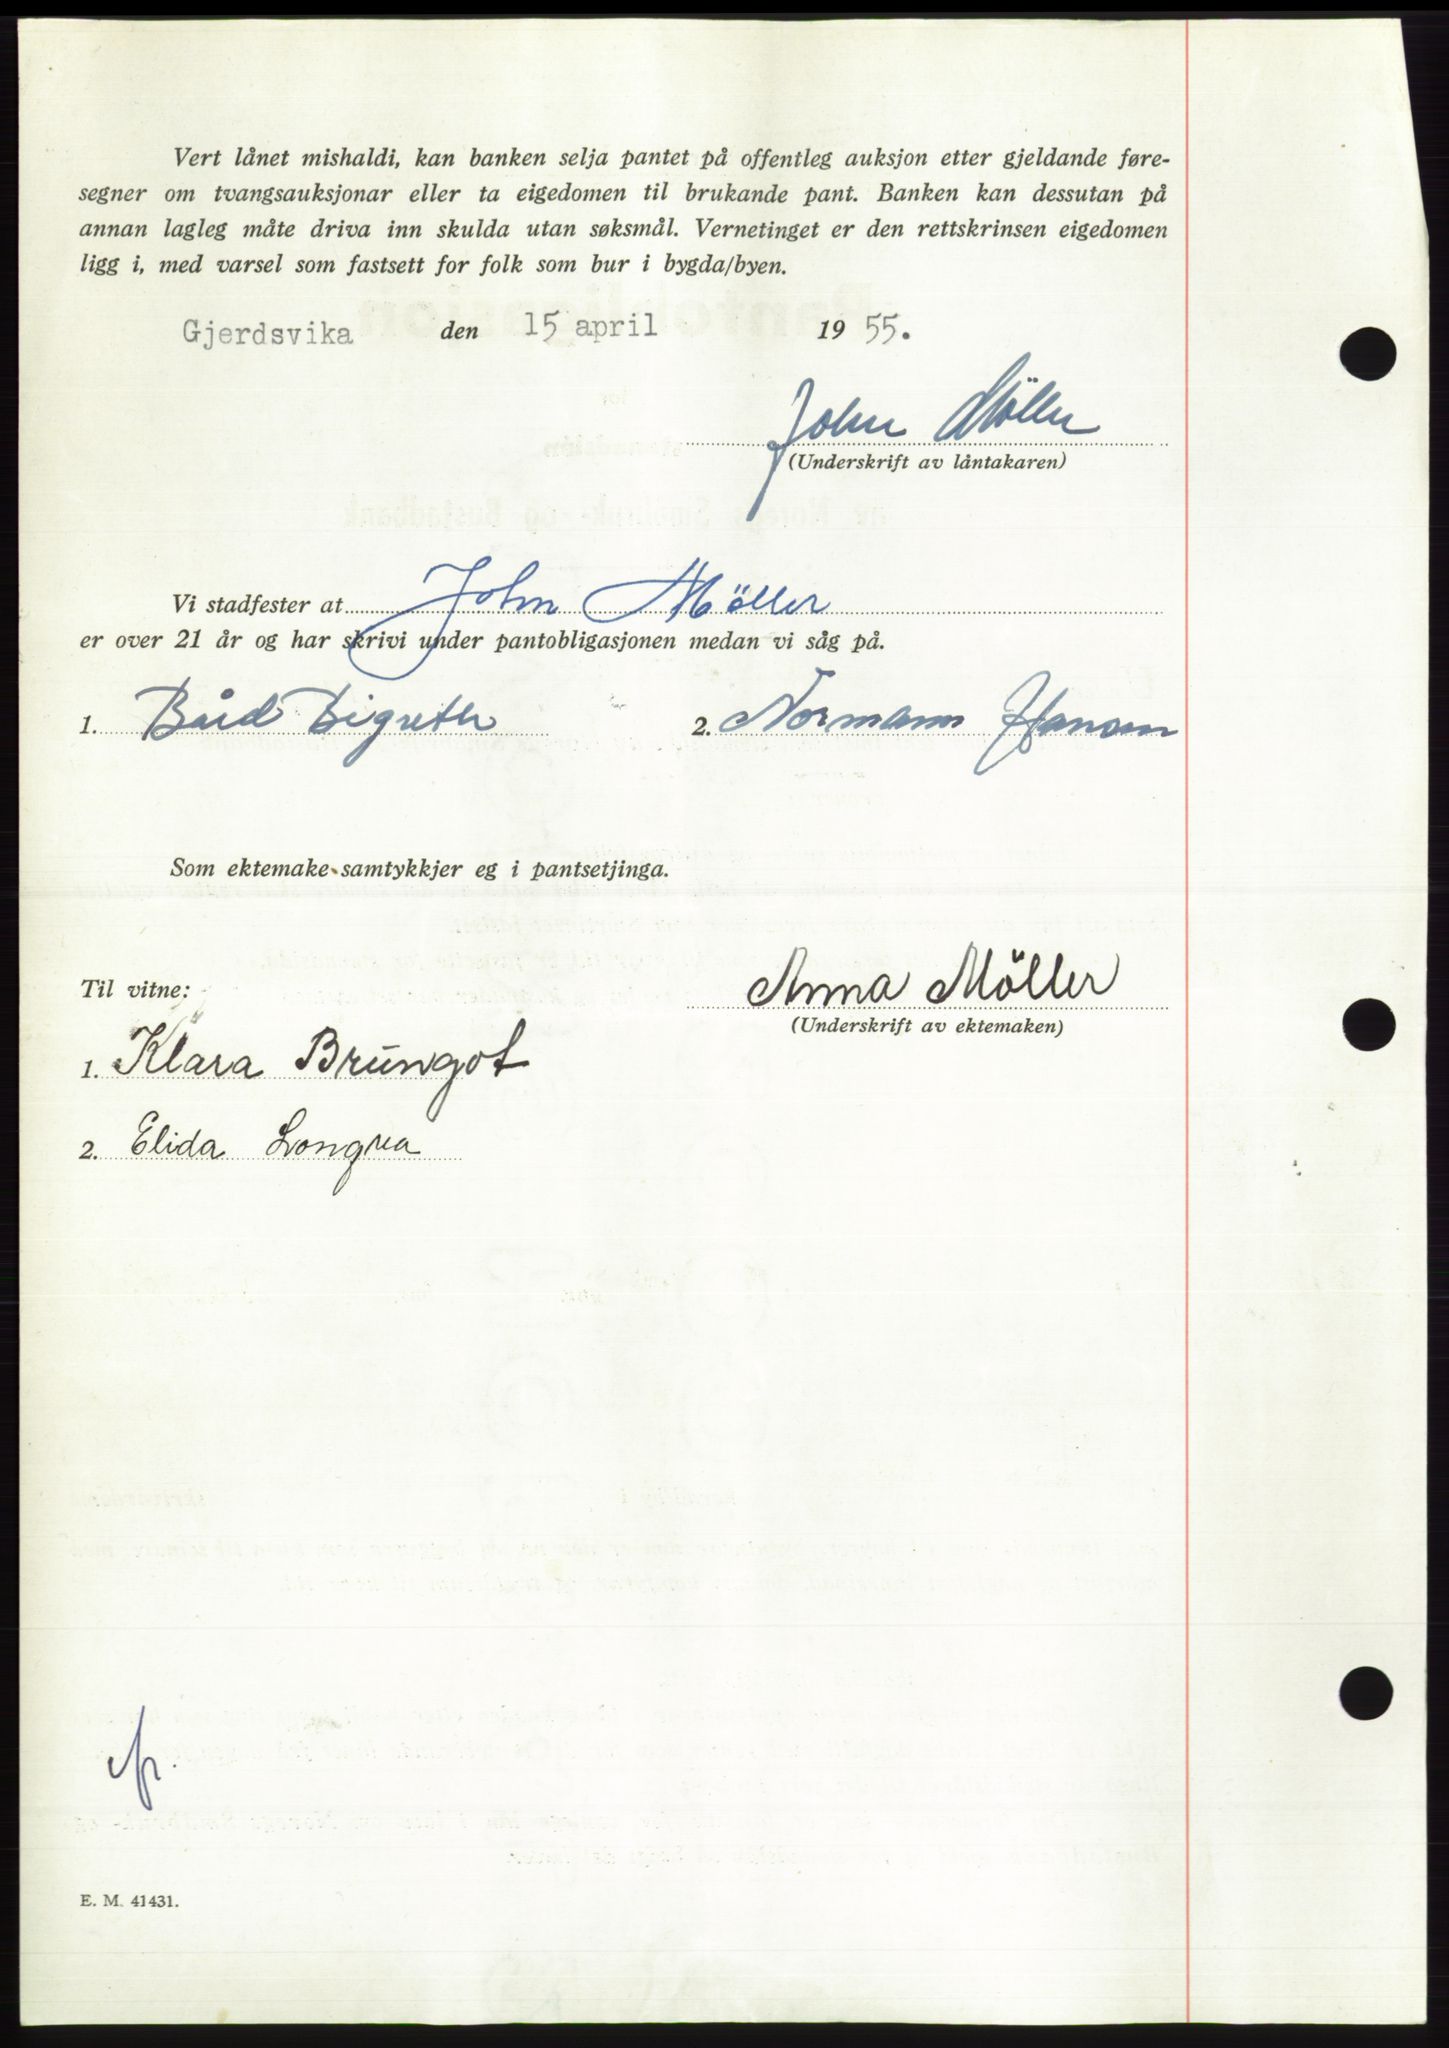 Vert lånet mishaldi, kan banken selja pantet på offentleg auksjon etter gjeldande føre-
segner om tvangsauksjonar eller ta eigedomen til brukande pant. Banken kan dessutan på
annan lagleg måte driva inn skulda utan søksmål. Vernetinget er den rettskrinsen eigedomen
ligg i, med varsel som fastsett for folk som bur i bygda/byen.
Gjerdsvika den 15 april 1955.
John Möller
(Underskrift av låntakaren)
Vi stadfester at John Möller
er over 21 år og har skrivi under pantobligasjonen medan vi såg på.
1. Bård 2. Normann Hansen
Som ektemake samtykkjer eg i pantsetjinga.
Til vitne:
Anna Möller
(Underskrift av ektemaken)
1. Klara Brungot
2. Elida Longva
E. M. 41431.